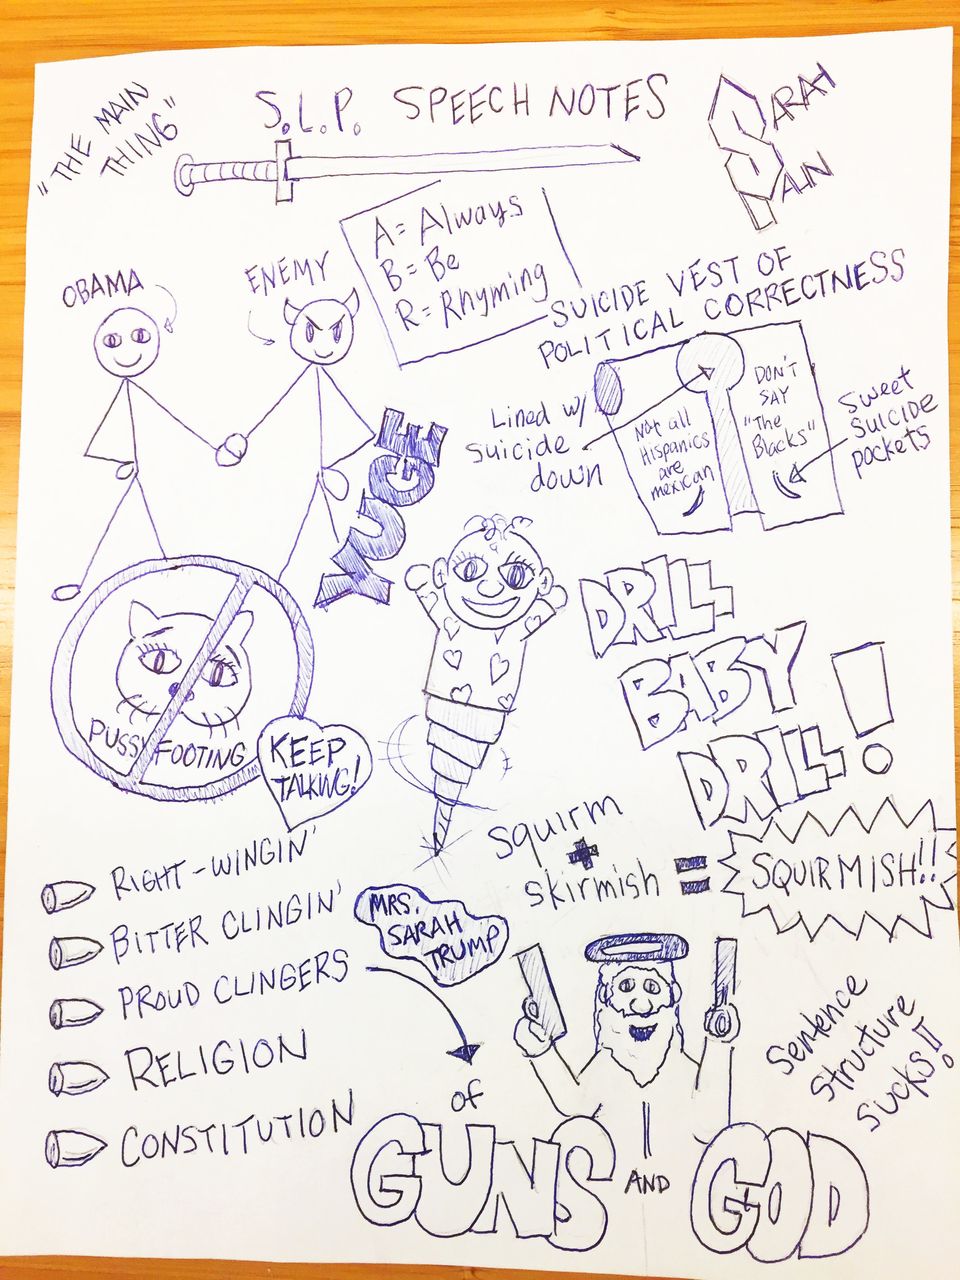 "THE MAIN
THING"
S.L.P. SPEECH NOTES
SARAH
PALIN
A= Always
B= Be
R= Rhyming
OBAMA
ENEMY
SUICIDE VEST OF
POLITICAL CORRECTNESS
Lined w/
suicide
down
Not all
Hispanics
are
mexican
DON'T
SAY
"The
Blacks"
Sweet
Suicide
pockets
YUGE
DRILL
BABY
DRILL!
PUSSYFOOTING
KEEP
TALKING!
squirm
+
skirmish = SQUIRMISH!!
RIGHT-WINGIN'
BITTER CLINGIN'
PROUD CLINGERS
RELIGION
CONSTITUTION
MRS.
SARAH
TRUMP
Sentence
Structure
sucks!!
of
GUNS AND GOD